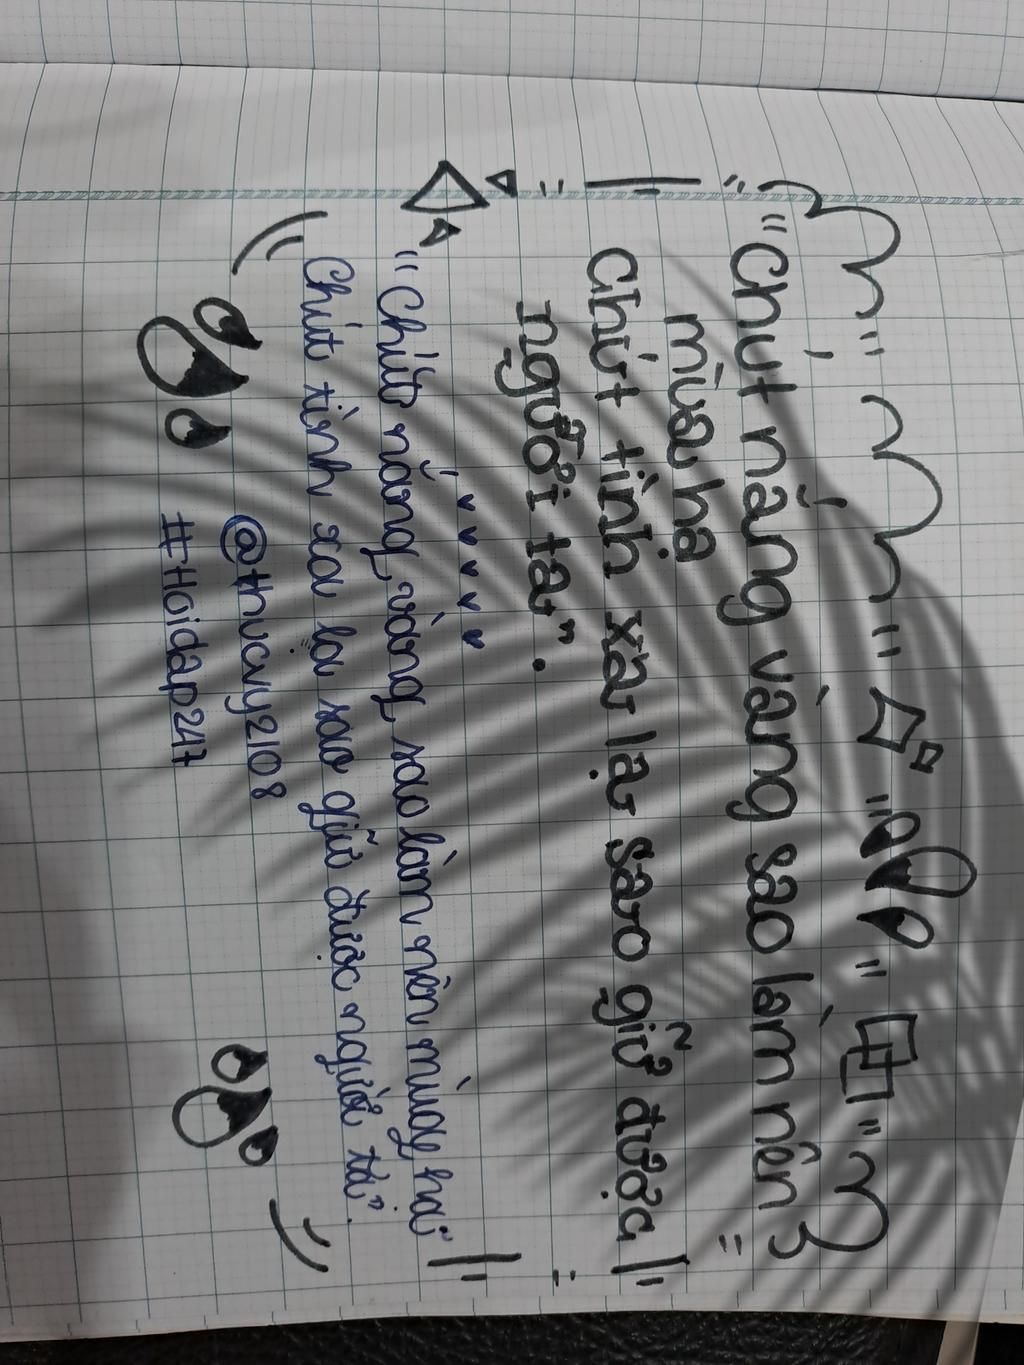 "Chút nắng vàng sao làm nên
mùa hạ
Chút tình xa lạ sao giữ được
người ta".
"Chút nắng vàng sao làm nên mùa hạ
Chút tình xa lạ sao giữ được người ta".
@thucvy2108
#Hoidap247